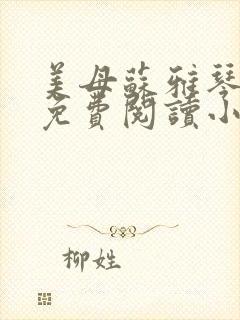 美母蘇雅琴
免費閱讀小
柳姓